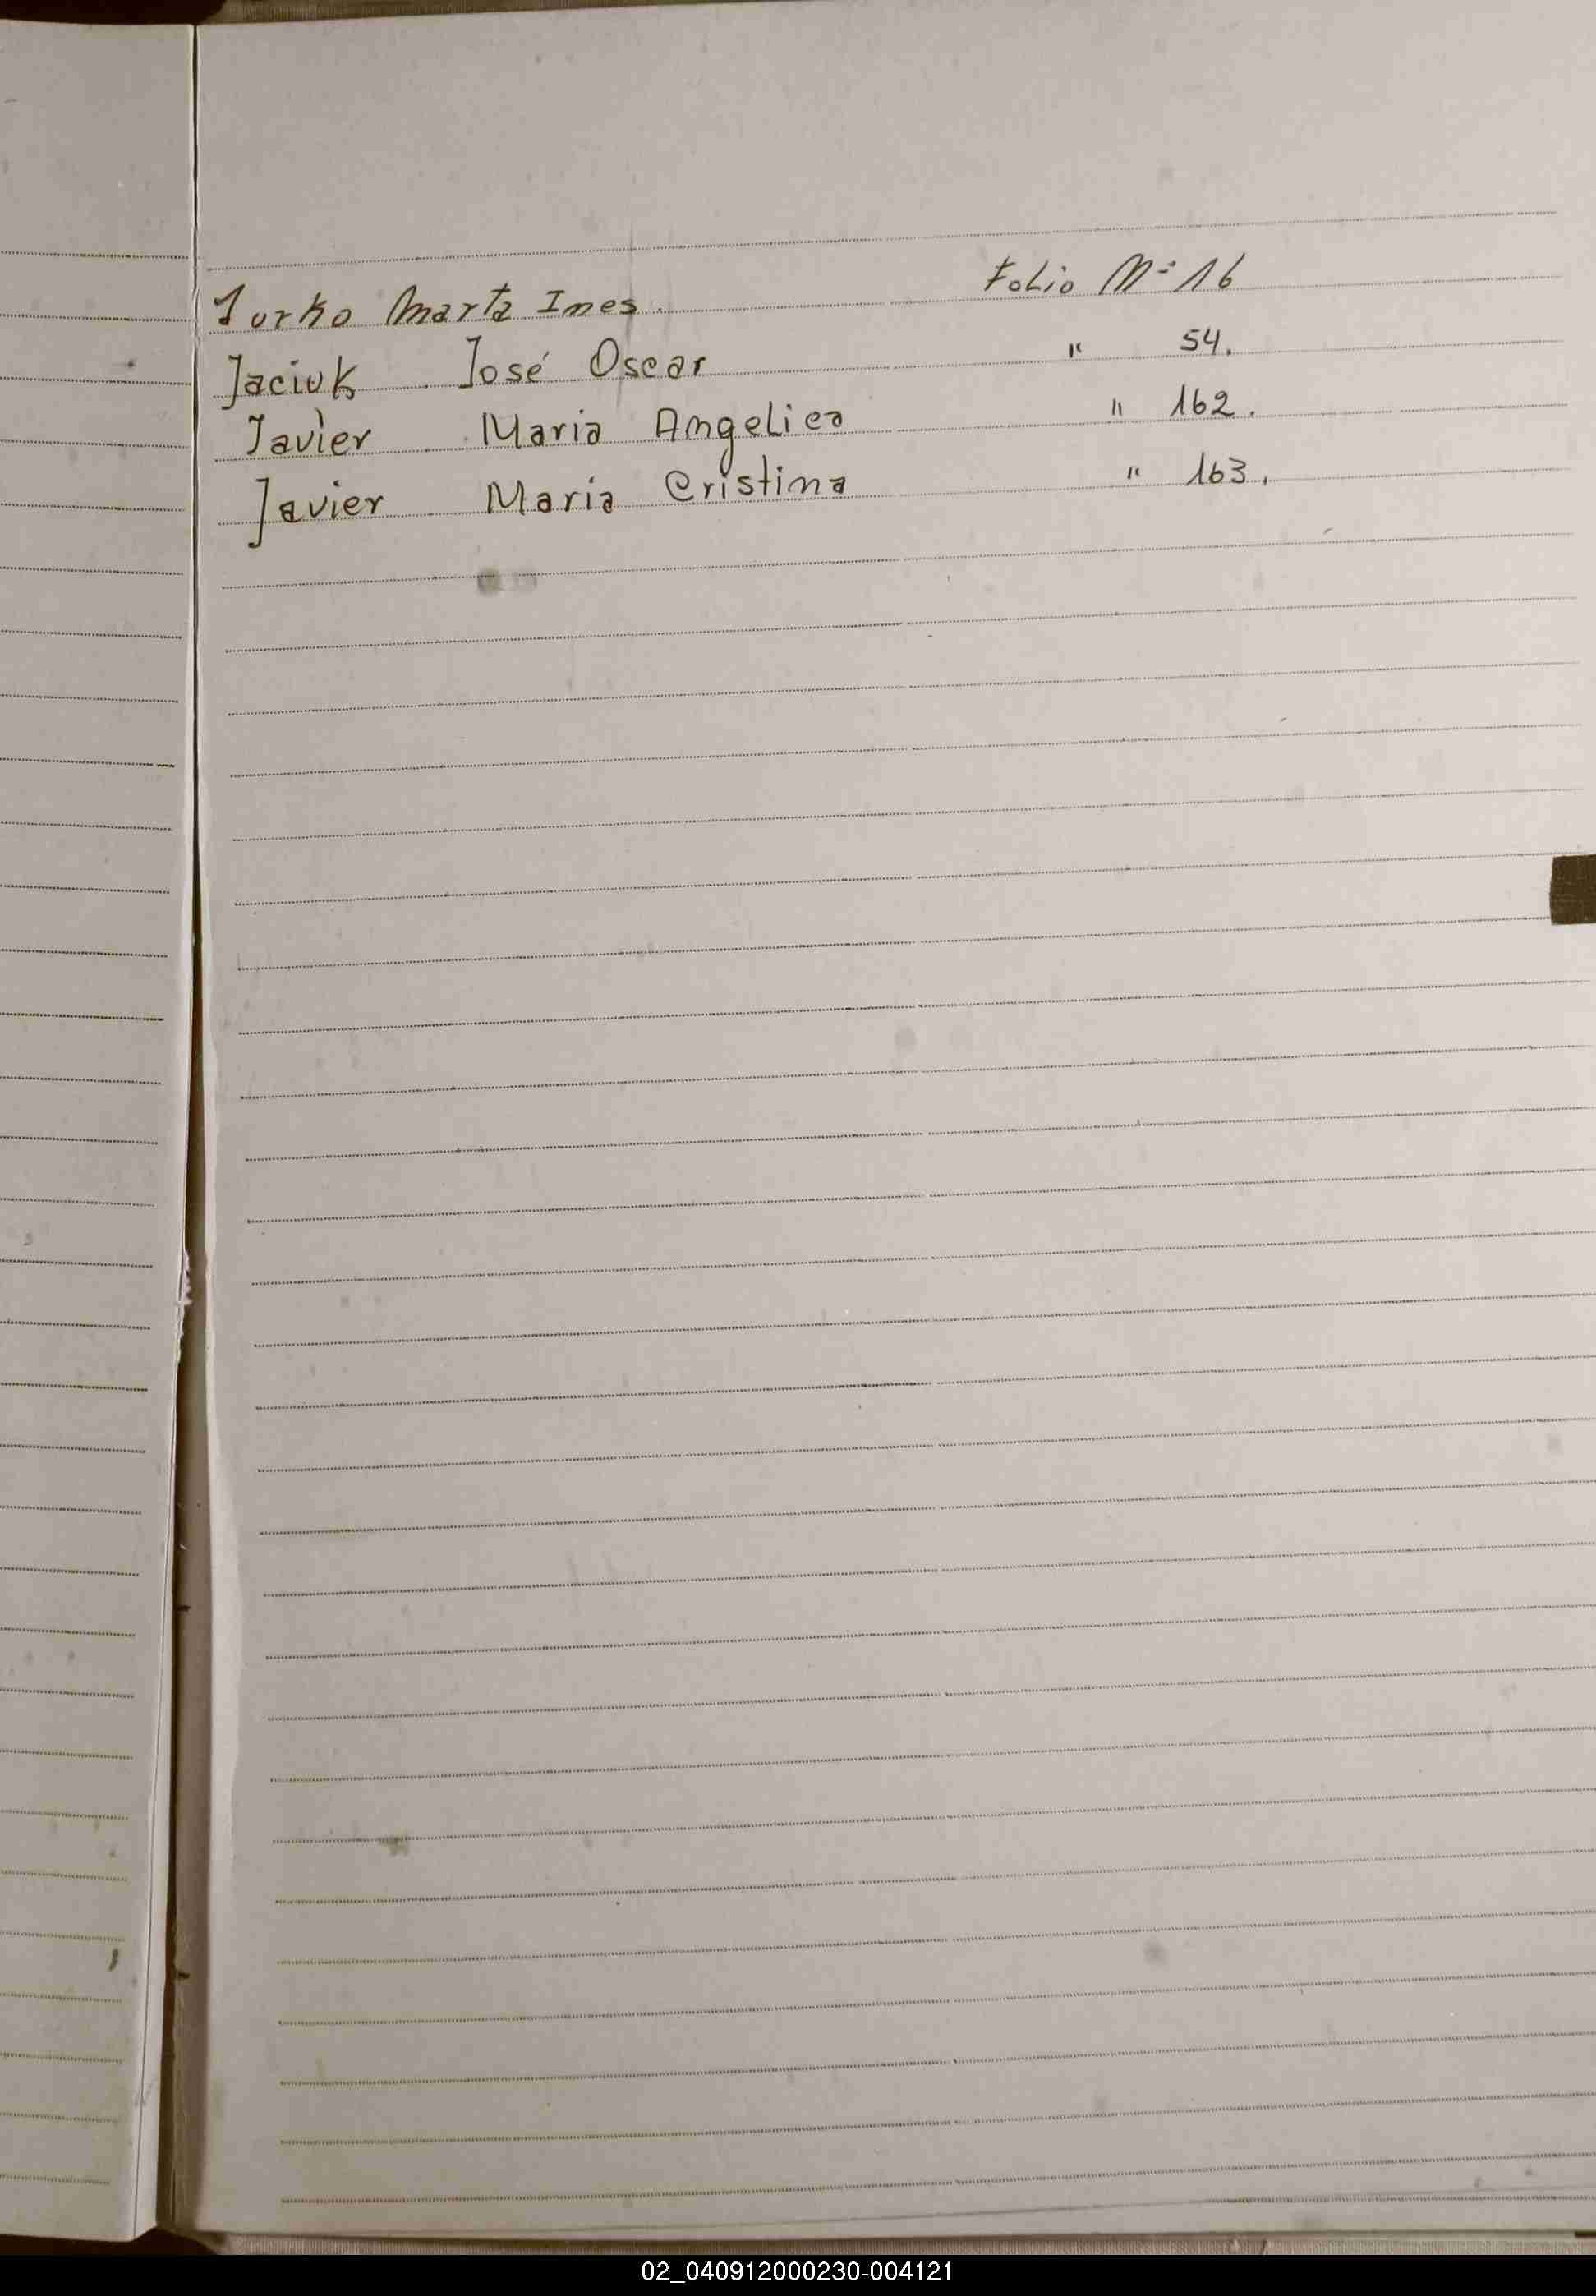 Jurko Marta Ines. Folio Nº 16
Jaciuk José Oscar " 54.
Javier Maria Angelica " 162.
Javier Maria Cristina " 163.
02_040912000230-004121